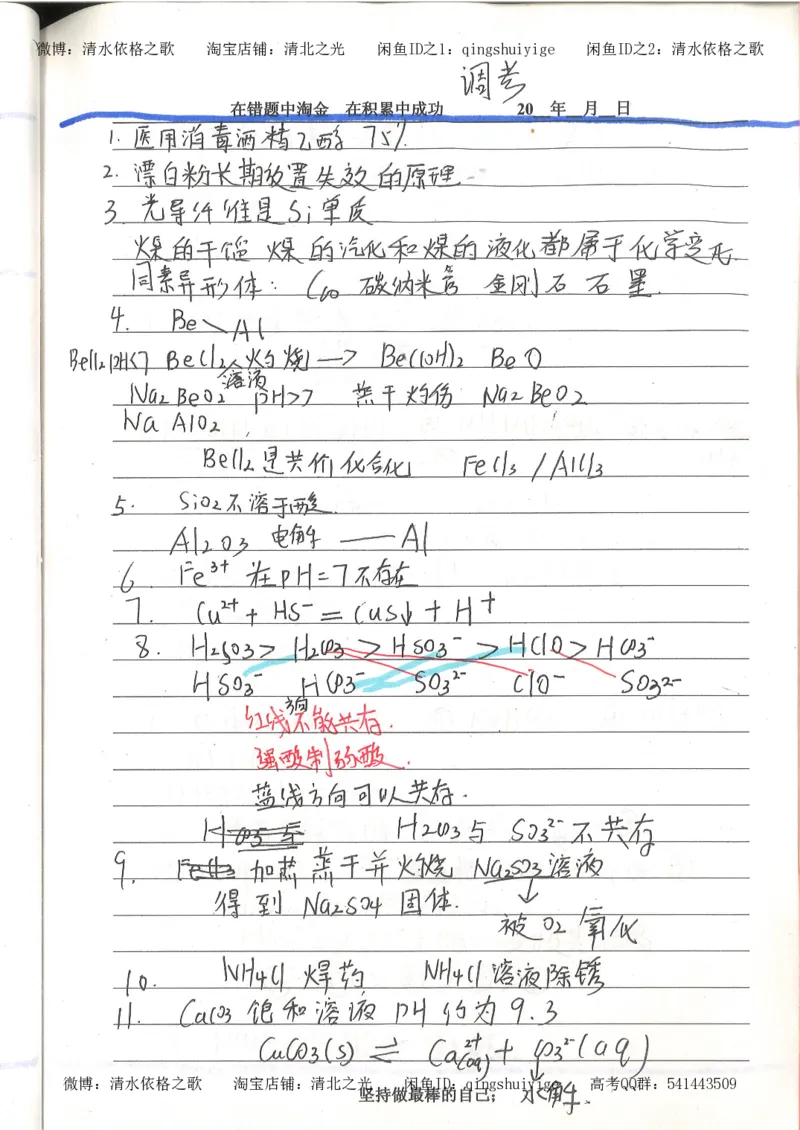 微博：清水依格之歌 淘宝店铺：清北之光 闲鱼ID之1：qingshuiyige 闲鱼ID之2：清水依格之歌
调考
在错题中淘金 在积累中成功 20 年 月 日
1. 医用消毒酒精乙醇 75%.
2. 漂白粉长期放置失效的原理
3. 光导纤维是Si单质
煤的干馏 煤的汽化和煤的液化都属于化学变化.
同素异形体： C60 碳纳米管 金刚石 石墨.
4. Be＼Al
BeCl2 PH<7 BeCl2溶液灼烧 → Be(OH)2 BeO
Na2BeO2 PH>7 蒸干灼伤 Na2BeO2
NaAlO2
BeCl2是共价化合化 FeCl3 / AlCl3
5. SiO2不溶于酸.
Al2O3 电解 —— Al
6. Fe3+ 在PH=7不存在
7. Cu2+ + HS- = CuS↓ + H+
8. H2SO3 > H2CO3 > HSO3- > HClO > HCO3-
HSO3- HCO3- SO32- ClO- SO32-
红线方向不能共存.
强酸制弱酸.
蓝线方向可以共存.
H2CO3与 SO32- 不共存
9. 加热蒸干并灼烧 Na2SO3溶液
得到 Na2SO4 固体. ↓
被O2氧化
10. NH4Cl 焊药 NH4Cl溶液除锈
11. CaCO3 饱和溶液 PH 约为 9.3
CuCO3(s) ⇌ Ca2+(aq) + CO32-(aq)
↓
水解.
微博：清水依格之歌 淘宝店铺：清北之光 闲鱼ID：qingshuiyige 高考QQ群：541443509
坚持做最棒的自己；